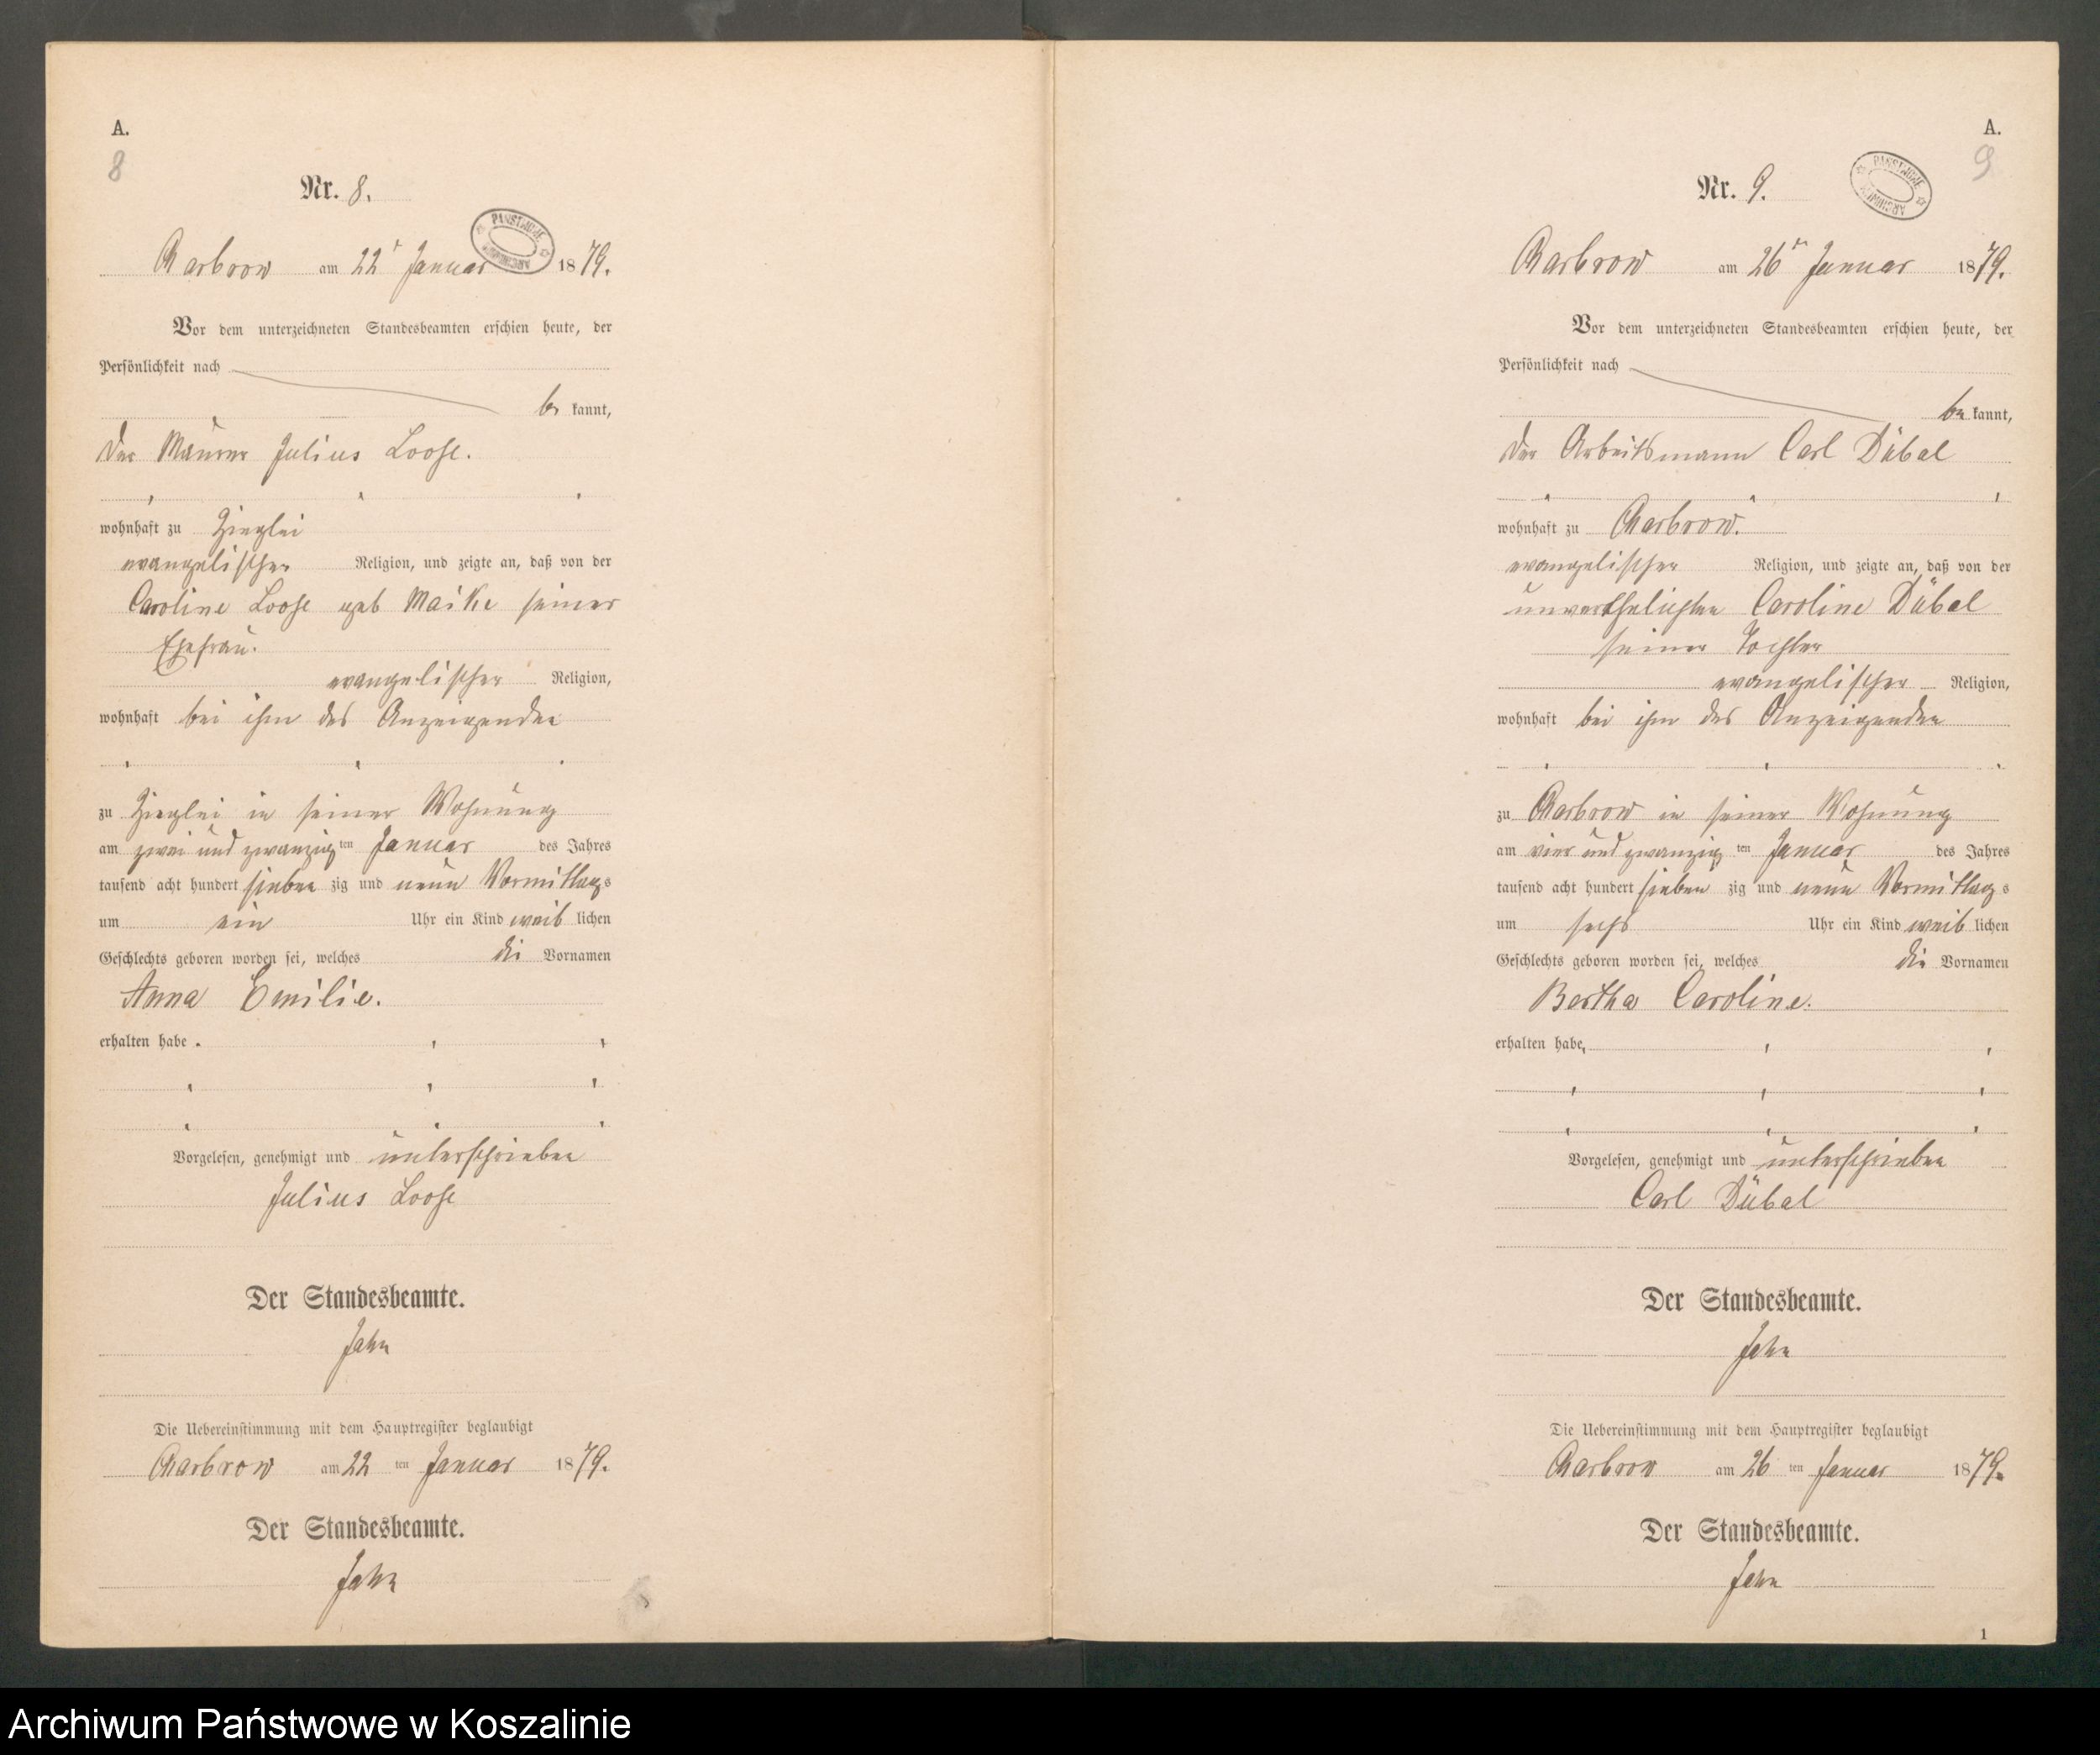 A.
8
Nr. 8.
PAŃSTWOWE ARCHIWUM
Charbrow am 22t Januar 1879.
Vor dem unterzeichneten Standesbeamten erschien heute, der
Persönlichkeit nach
be kannt,
der Maurer Julius Loose.
wohnhaft zu Ziegelei
evangelischer Religion, und zeigte an, daß von der
Caroline Loose geb Maike seiner
Ehefrau.
evangelischer Religion,
wohnhaft bei ihm des Anzeigenden
zu Ziegelei in seiner Wohnung
am zwei und zwanzig ten Januar des Jahres
tausend acht hundert sieben zig und neun Vormittags
um ein Uhr ein Kind weib lichen
Geschlechts geboren worden sei, welches die Vornamen
Anna Emilie.
erhalten habe.
Vorgelesen, genehmigt und unterschrieben
Julius Loose
Der Standesbeamte.
Jahn
Die Uebereinstimmung mit dem Hauptregister beglaubigt
Charbrow am 22 ten Januar 1879.
Der Standesbeamte.
Jahn
A.
9
Nr. 9.
PAŃSTWOWE ARCHIWUM
Charbrow am 26t Januar 1879.
Vor dem unterzeichneten Standesbeamten erschien heute, der
Persönlichkeit nach
be kannt,
der Arbeitsmann Carl Dübal
wohnhaft zu Charbrow.
evangelischer Religion, und zeigte an, daß von der
unverehelichten Caroline Dübal
seiner Tochter
evangelischer Religion,
wohnhaft bei ihm des Anzeigenden
zu Charbrow in seiner Wohnung
am vier und zwanzig ten Januar des Jahres
tausend acht hundert sieben zig und neun Vormittags
um sechs Uhr ein Kind weib lichen
Geschlechts geboren worden sei, welches die Vornamen
Bertha Caroline.
erhalten habe
Vorgelesen, genehmigt und unterschrieben
Carl Dübal
Der Standesbeamte.
Jahn
Die Uebereinstimmung mit dem Hauptregister beglaubigt
Charbrow am 26 ten Januar 1879.
Der Standesbeamte.
Jahn
1
Archiwum Państwowe w Koszalinie